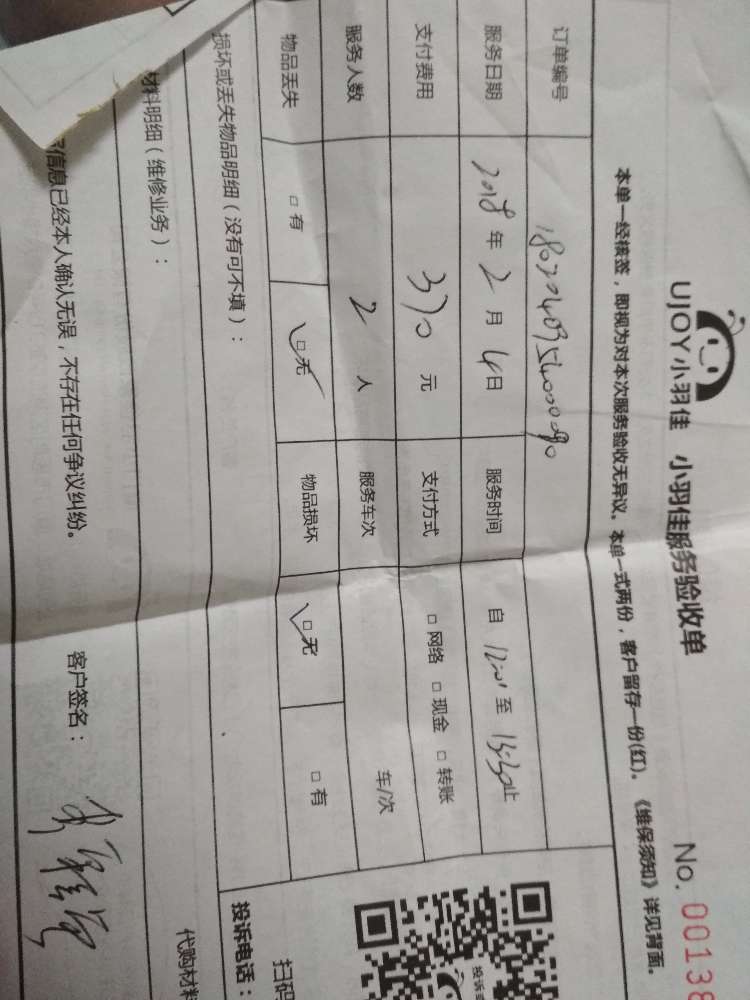 UJOY小羽佳 小羽佳服务验收单
No. 00138
本单一经核签，即视为对本次服务验收无异议。本单一式两份，客户留存一份(红)。《维保须知》详见背面。
订单编号
服务日期 2018年2月4日 服务时间 自 12:00 至 15:30止
支付费用 370元 支付方式 □网络 □现金 □转账
服务人数 2人 服务车次 车/次
物品丢失 □有 □无 物品损坏 □无 □有
损坏或丢失物品明细（没有可不填）：
材料明细（维修业务）：
信息已经本人确认无误，不存在任何争议纠纷。 客户签名：
扫码
投诉电话：
代购材料